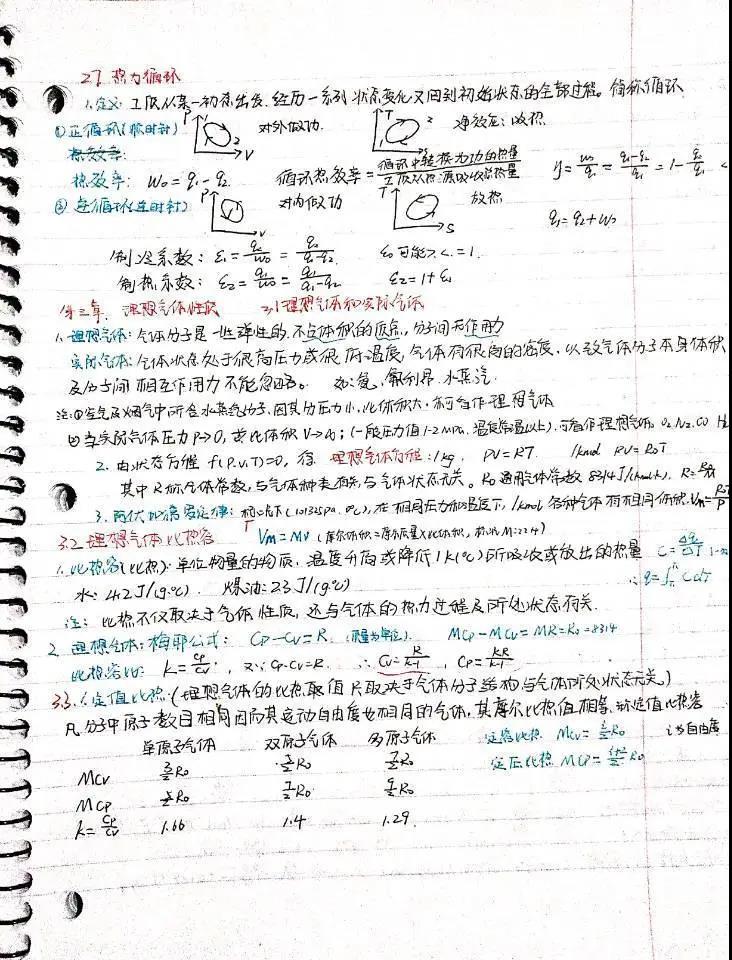 2.7 热力循环
1.定义 工质从某一初态出发、经历一系列状态变化又回到初始状态的全部过程。简称循环
①正循环(顺时针) P V 对外做功 T 净效应:吸热
热效率:
热效率: w₀ = q₁-q₂ 循环热效率 = 循环中转换为功的热量/工质从热源吸收总热量 η = w₀/q₁ = (q₁-q₂)/q₁ = 1 - q₂/q₁ <
② 逆循环(逆时针) P V 对内做功 T S 放热 q₁=q₂+w₀
制冷系数: ε₁ = q₂/w₀ = q₂/(q₁-q₂) ε₁可能>.<.=1.
制热系数: ε₂ = q₁/w₀ = q₁/(q₁-q₂) ε₂=1+ε₁
第三章. 理想气体性质 3.1理想气体和实际气体
1.理想气体: 气体分子是一些弹性的.不占体积的质点, 分子间无作用力
实际气体: 气体状态处于很高压力或很低温度, 气体有很高的密度, 以致气体分子本身体积
及分子间相互作用力不能忽略。 如:氨, 氟利昂.水蒸汽.
注:①空气及烟气中所含水蒸气分子,因其分压力小,比体积大.称可看作理想气体
②当实际气体压力P→0, 或比体积V→∞;(一般压力值1-2MPa, 温度常温以上).可看作理想气体. O₂.N₂.CO H₂
2. 由状态方程 f(P.v.T)=0, 得 理想气体方程:1kg, PV=RT. 1kmol PV=R₀T
其中R称气体常数,与气体种类有关,与气体状态无关。R₀通用气体常数 8314J/(kmol·k). R=R₀/M
3. 阿伏加德罗定律: 标况下(101325pa. 0℃),在相同压力和温度下,1kmol各种气体有相同体积.Vm=R₀T/P
3.2 理想气体比热容 Vm=Mv (摩尔体积=摩尔质量×比体积, 标况Mv=22.4)
1. 比热容(比热):单位物量的物质, 温度升高或降低1K(℃)所吸收或放出的热量 C=Δq/ΔT
水: 4.2J/(g·℃). 煤油:2.3J/(g·℃) ∴ q=∫ CdT
注: 比热不仅取决于气体性质, 还与气体的热力过程及所处状态有关.
2. 理想气体:梅耶公式: Cp-Cv=R. (质量为单位). MCp-MCv=MR=R₀=8314
比热容比: K=Cp/Cv, 又∵Cp-Cv=R. ∴ Cv=R/(k-1), Cp=kR/(k-1)
3.3. 1.定值比热:(理想气体的比热取值只取决于气体分子结构与气体所处状态无关)
凡分子中原子数目相同因而其运动自由度也相同的气体,其摩尔比热值相等.称定值比热容
单原子气体 双原子气体 多原子气体 定容比热 MCv=i/2R₀ i为自由度
MCv 3/2R₀ 5/2R₀ 7/2R₀ 定压比热 MCp=(i+2)/2R₀
MCp 5/2R₀ 7/2R₀ 9/2R₀
k=Cp/Cv 1.66 1.4 1.29.